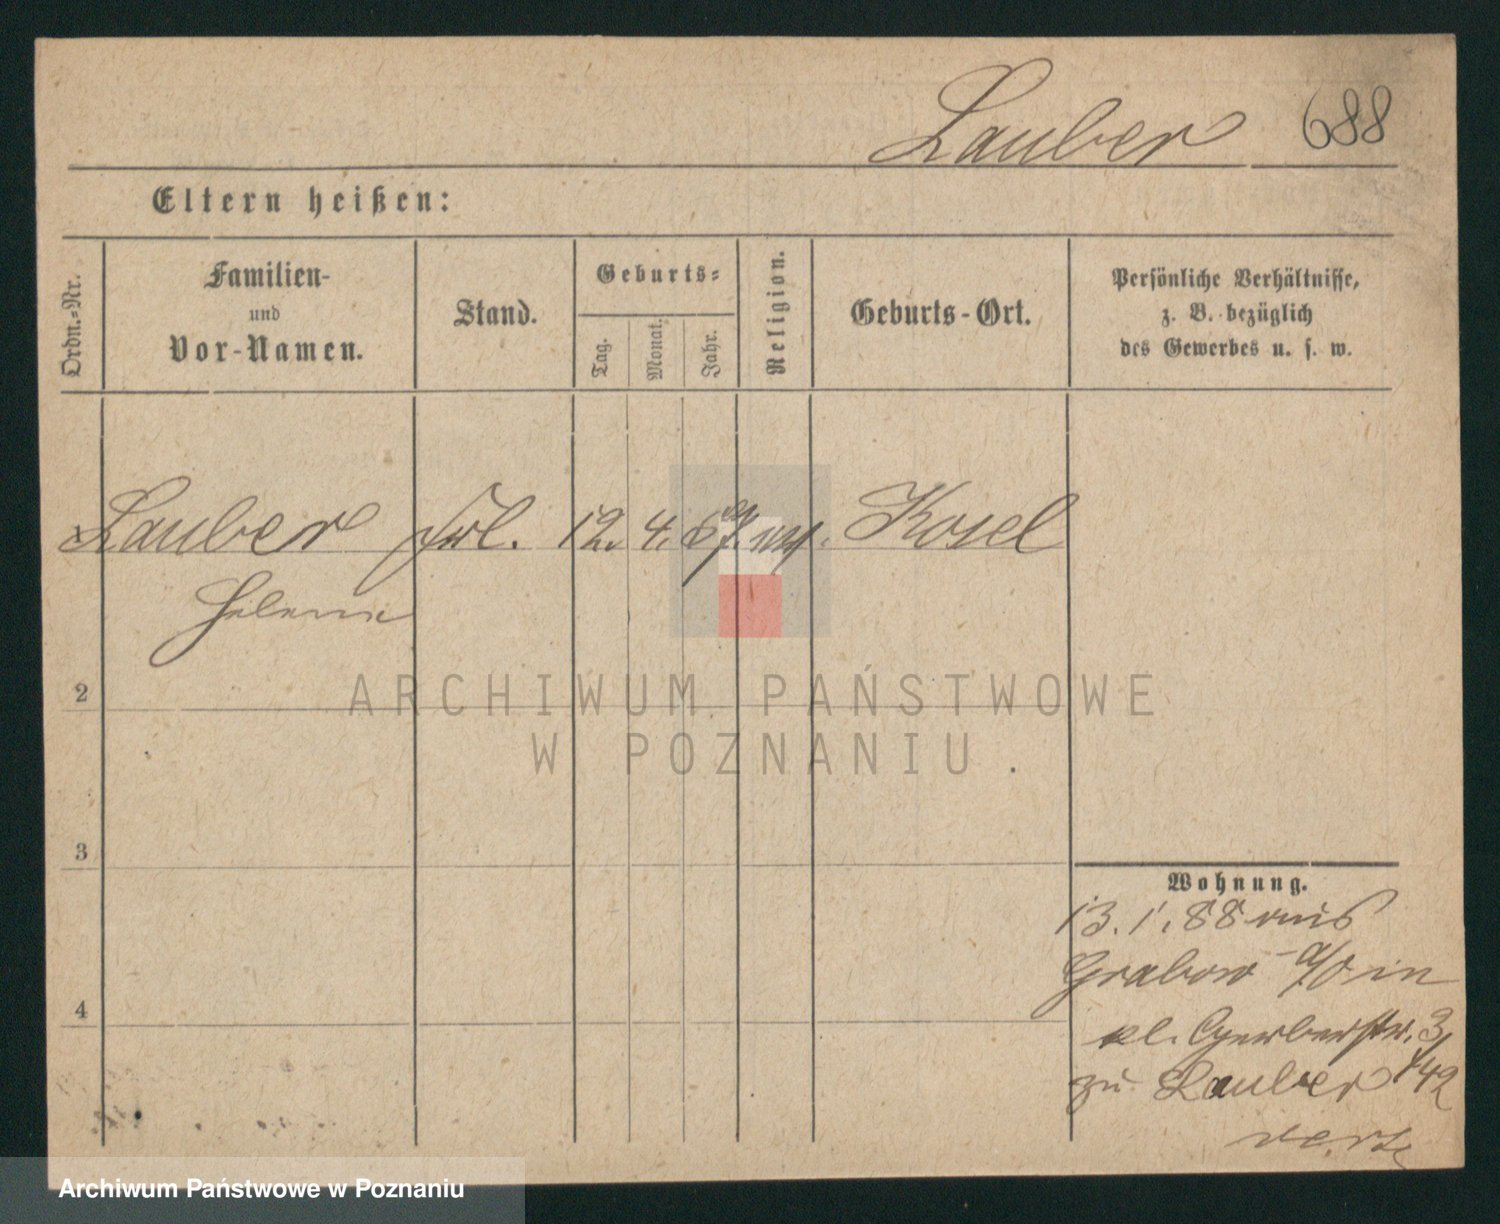 Lauber 688
Eltern heißen:
Ordn.-Nr.
Familien-
und
Vor-Namen.
Stand.
Geburts-
Tag.
Monat.
Jahr.
Religion.
Geburts-Ort.
Persönliche Verhältnisse,
z. B. bezüglich
des Gewerbes u. s. w.
1 Lauber Frl. 12. 4. 67. Kosel
Helene
2
3
4
ARCHIWUM PAŃSTWOWE
W POZNANIU .
Wohnung.
13. 1. 88 aus
Grabow a/O in
kl. Gerberstr. 3/
zu Lauber
Archiwum Państwowe w Poznaniu